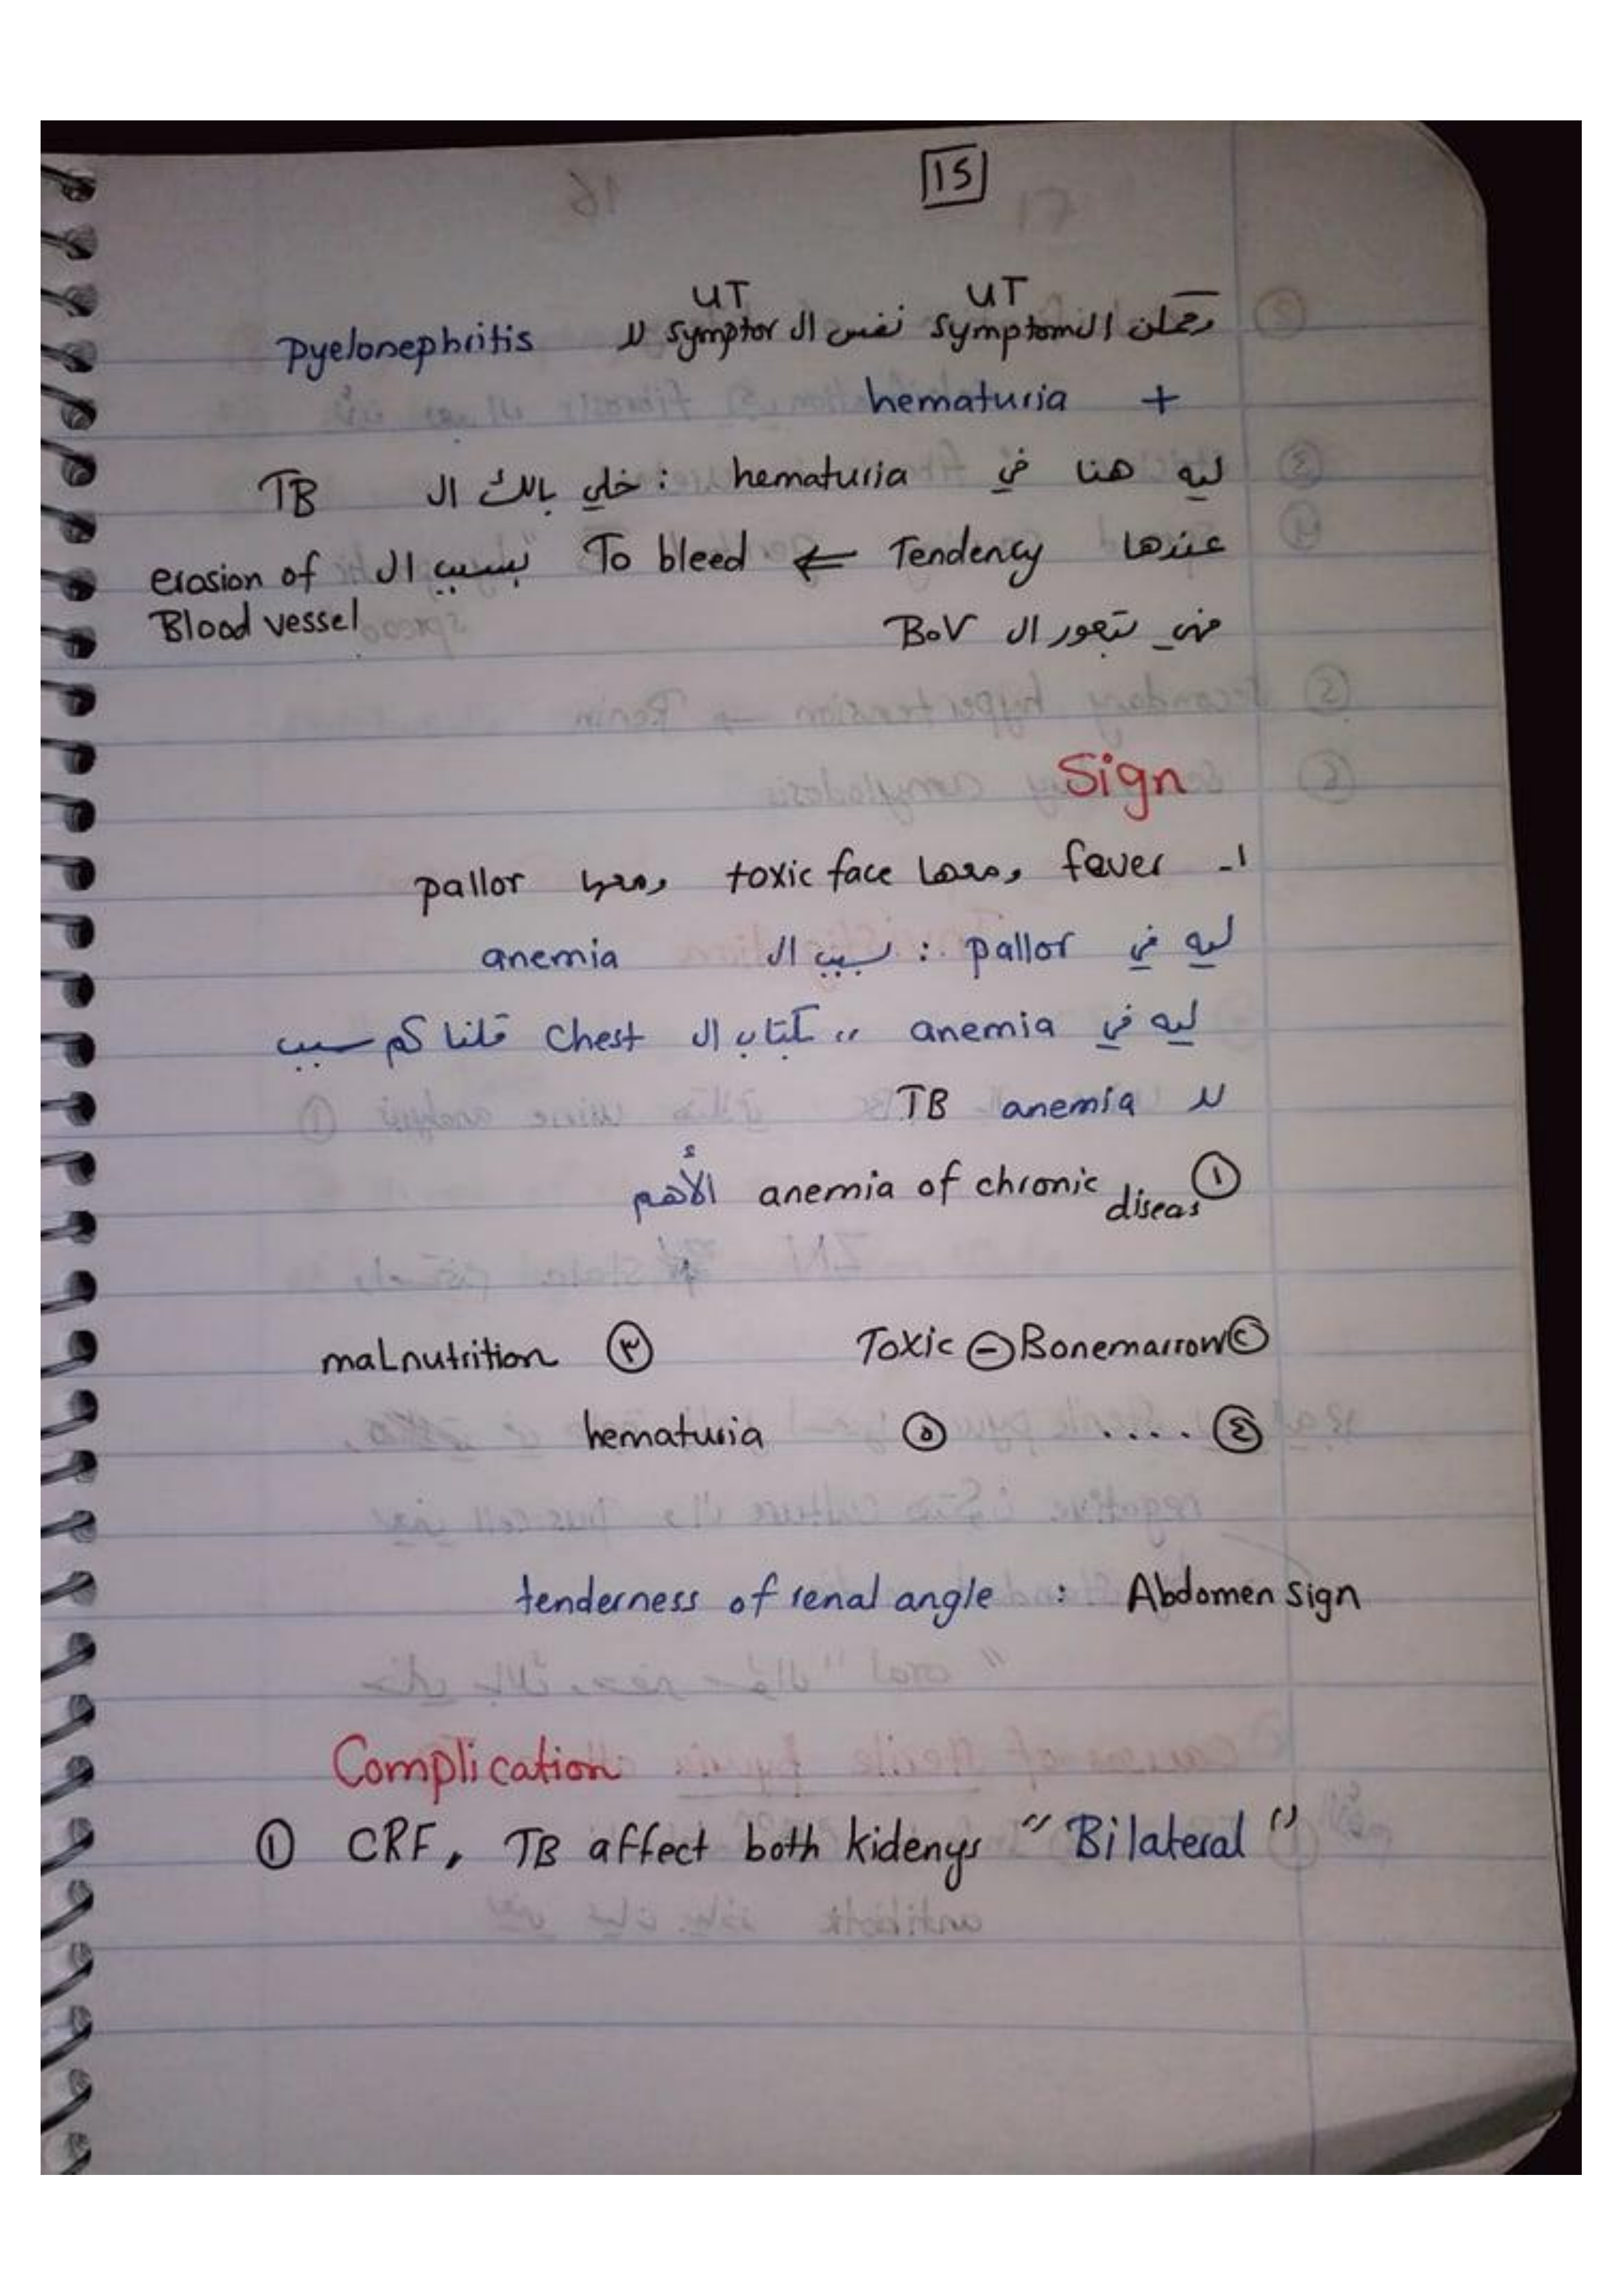 15
UT UT
وكمان ال symptom نفس ال symptor لل pyelonephritis
+ hematuria
ليه هنا في hematuria : خلي بالك ال TB
عندها Tendency ⇐ To bleed بسبب ال erosion of Blood vessel
فهي بتعور ال BoV
Sign
١- fever ومعها toxic face ومعها pallor
ليه في pallor : بسبب ال anemia
ليه في anemia ,, كتاب ال Chest قلنا كم سبب
لل TB anemia
① anemia of chronic diseas الأهم
② Toxic ⊖ Bonemarrow ③ malnutrition
④ .... ⑤ hematuria
Abdomen sign : tenderness of renal angle
Complication
① CRF, TB affect both kidenys "Bilateral"